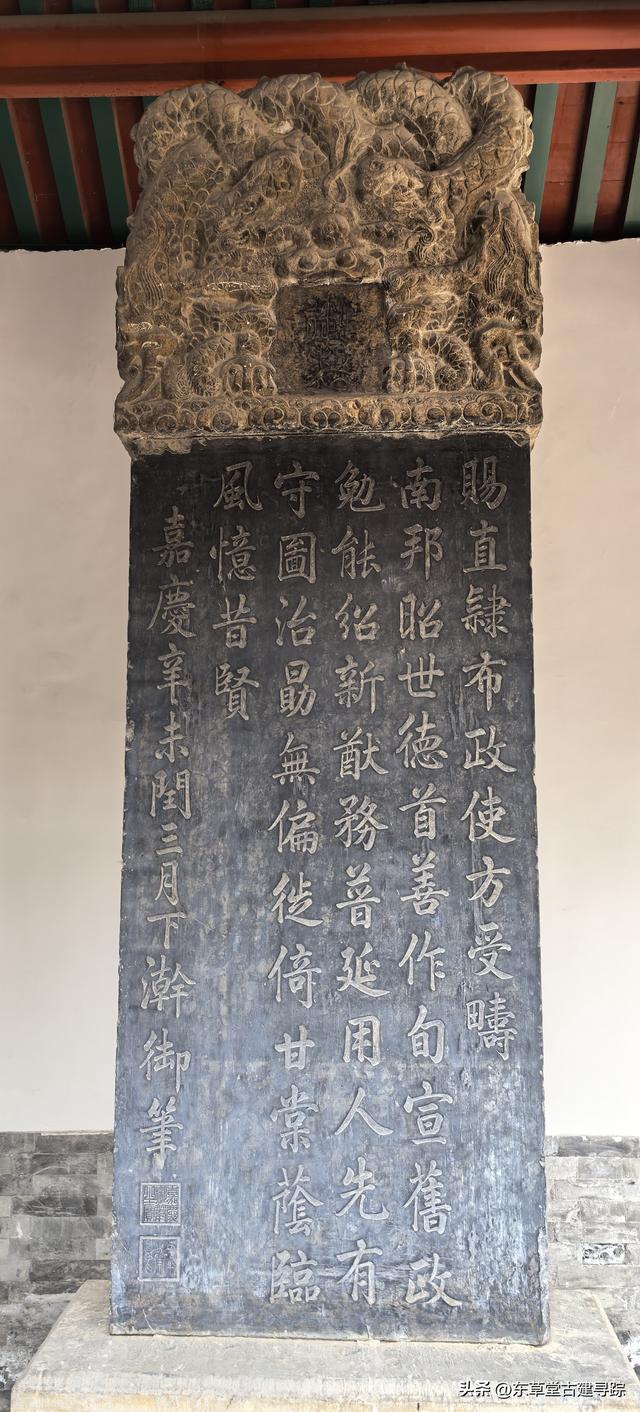 賜直隸布政使方受疇
南邦昭世德首善作旬宣舊政
勉能紹新猷務普延用人先有
守圖治勗無偏徙倚甘棠蔭臨
風憶昔賢
嘉慶辛未閏三月下澣御筆
头条 @东草堂古建寻踪